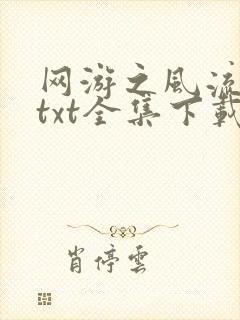 网游之风流
txt全集下载
肖停云